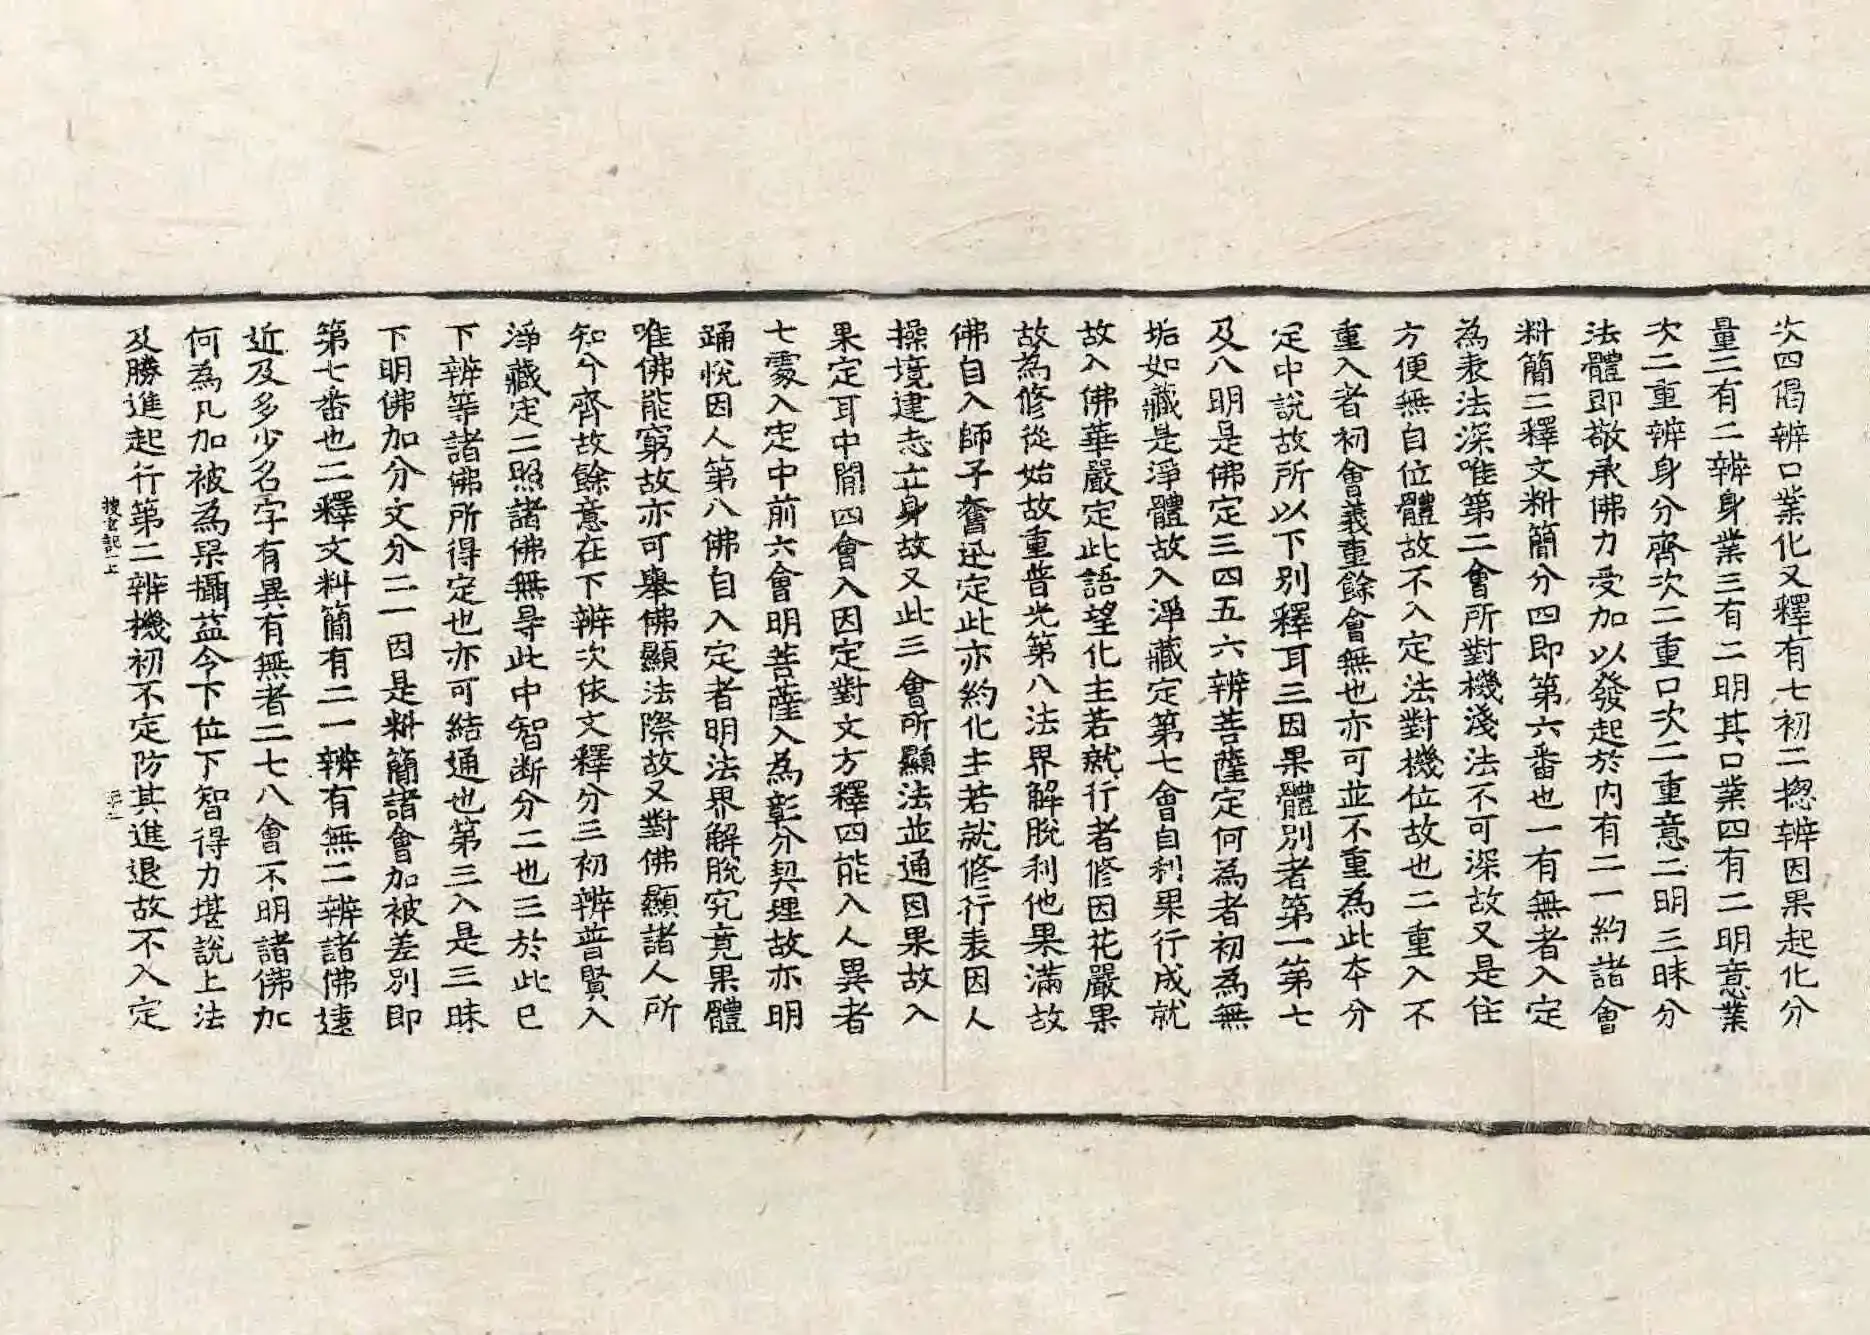 次四偈辨口業化又釋有七初二揔辨因果起化分
量二有二辨身業三有二明其口業四有二明意業
次二重辨身分齊次二重口次二重意二明三昧分
法體即敬承佛力受加以發起於內有二一約諸會
料簡二釋文料簡分四即第六番也一有無者入定
為表法深唯第二會所對機淺法不可深故又是住
方便無自位體故不入定法對機位故也二重入不
重入者初會義重餘會無也亦可並不重為此本分
定中說故所以下別釋耳三因果體別者第一第七
及八明是佛定三四五六辨菩薩定何為者初為無
垢如藏是淨體故入淨藏定第七會自利果行成就
故入佛華嚴定此語望化主若就行者修因花嚴果
故為修從始故重普光第八法界解脫利他果滿故
佛自入師子奮迅定此亦約化主若就修行表因人
操境建志立身故又此三會所顯法並通因果故入
果定耳中間四會入因定對文方釋四能入人異者
七處入定中前六會明菩薩入為彰分契理故亦明
踊悅因人第八佛自入定者明法界解脫究竟果體
唯佛能窮故亦可舉佛顯法際故又對佛顯諸人所
知分齊故餘意在下辨次依文釋分三初辨普賢入
淨藏定二照諸佛無导此中智断分二也三於此已
下辨等諸佛所得定也亦可結通也第三入是三昧
下明佛加分文分二一因是料簡諸會加被差別即
第七番也二釋文料簡有二一辨有無二辨諸佛遠
近及多少名字有異有無者二七八會不明諸佛加
何為凡加被為杲攝益令下位下智得力堪說上法
及勝進起行第二辨機初不定防其進退故不入定
搜玄記一上